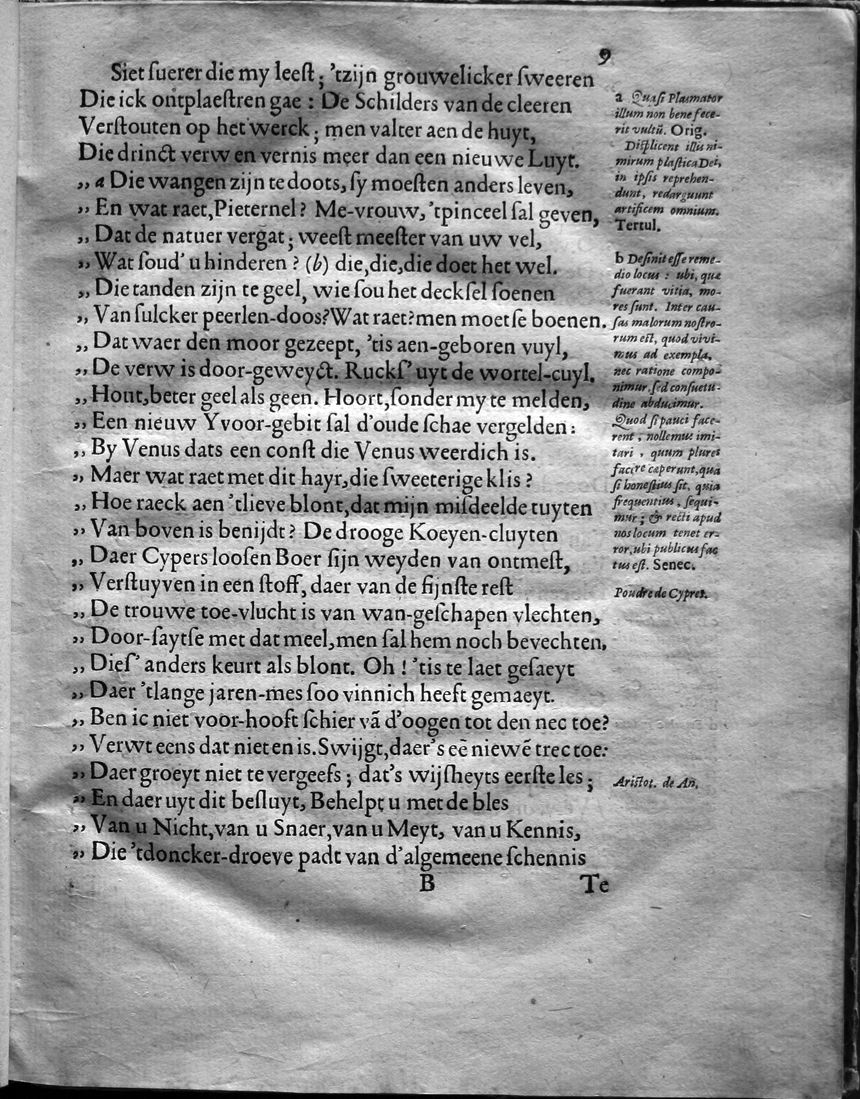 9
Siet suerer die my leest ; 'tzijn grouwelicker sweeren
Die ick ontplaestren gae : De Schilders van de cleeren
Verstouten op het werck ; men valter aen de huyt,
Die drinct verw en vernis meer dan een nieuwe Luyt.
„ a Die wangen zijn te doots, sy moesten anders leven,
„ En wat raet, Pieternel? Me-vrouw, 'tpinceel sal geven,
„ Dat de natuer vergat ; weest meester van uw vel,
„ Wat soud' u hinderen ? (b) die, die, die doet het wel.
„ Die tanden zijn te geel, wie sou het decksel soenen
„ Van sulcker peerlen-doos? Wat raet? men moet se boenen.
„ Dat waer den moor gezeept, 'tis aen-geboren vuyl,
„ De verw is door-geweyct. Rucks' uyt de wortel-cuyl.
„ Hout, beter geel als geen. Hoort, sonder my te melden,
„ Een nieuw Yvoor-gebit sal d'oude schae vergelden :
„ By Venus dats een const die Venus weerdich is.
„ Maer wat raet met dit hayr, die sweeterige klis ?
„ Hoe raeck aen 'tlieve blont, dat mijn misdeelde tuyten
„ Van boven is benijdt ? De drooge Koeyen-cluyten
„ Daer Cypers loosen Boer sijn weyden van ontmest,
„ Verstuyven in een stoff, daer van de sijnste rest
„ De trouwe toe-vlucht is van wan-geschapen vlechten,
„ Door-saytse met dat meel, men sal hem noch bevechten,
„ Dies' anders keurt als blont. Oh ! 'tis te laet gesaeyt
„ Daer 'tlange jaren-mes soo vinnich heeft gemaeyt.
„ Ben ic niet voor-hooft schier vã d'oogen tot den nec toe?
„ Verwt eens dat niet en is. Swijgt, daer's eẽ niewẽ trec toe:
„ Daer groeyt niet te vergeefs ; dat's wijsheyts eerste les ;
„ En daer uyt dit besluyt, Behelpt u met de bles
„ Van u Nicht, van u Snaer, van u Meyt, van u Kennis,
„ Die 'tdoncker-droeve padt van d'algemeene schennis
B Te
a Quasi Plasmator
illum non bene fece-
rit vultũ. Orig.
Displicent illis ni-
mirum plastica Dei,
in ipsis reprehen-
dunt, redarguunt
artificem omnium.
Tertul.
b Desinit esse reme-
dio locus : ubi, quæ
fuerant vitia, mo-
res sunt. Inter cau-
sas malorum nostro-
rum est, quod vivi-
mus ad exempla,
nec ratione compo-
nimur, sed consuetu-
dine abducimur.
Quod si pauci face-
rent, nollemus imi-
tari, quum plures
facere cœperunt, qua
si honestius sit, quia
frequentius, sequi-
mur ; & recti apud
nos locum tenet er-
ror, ubi publicus fac
tus est. Senec.
Poudre de Cypret.
Aristot. de An.